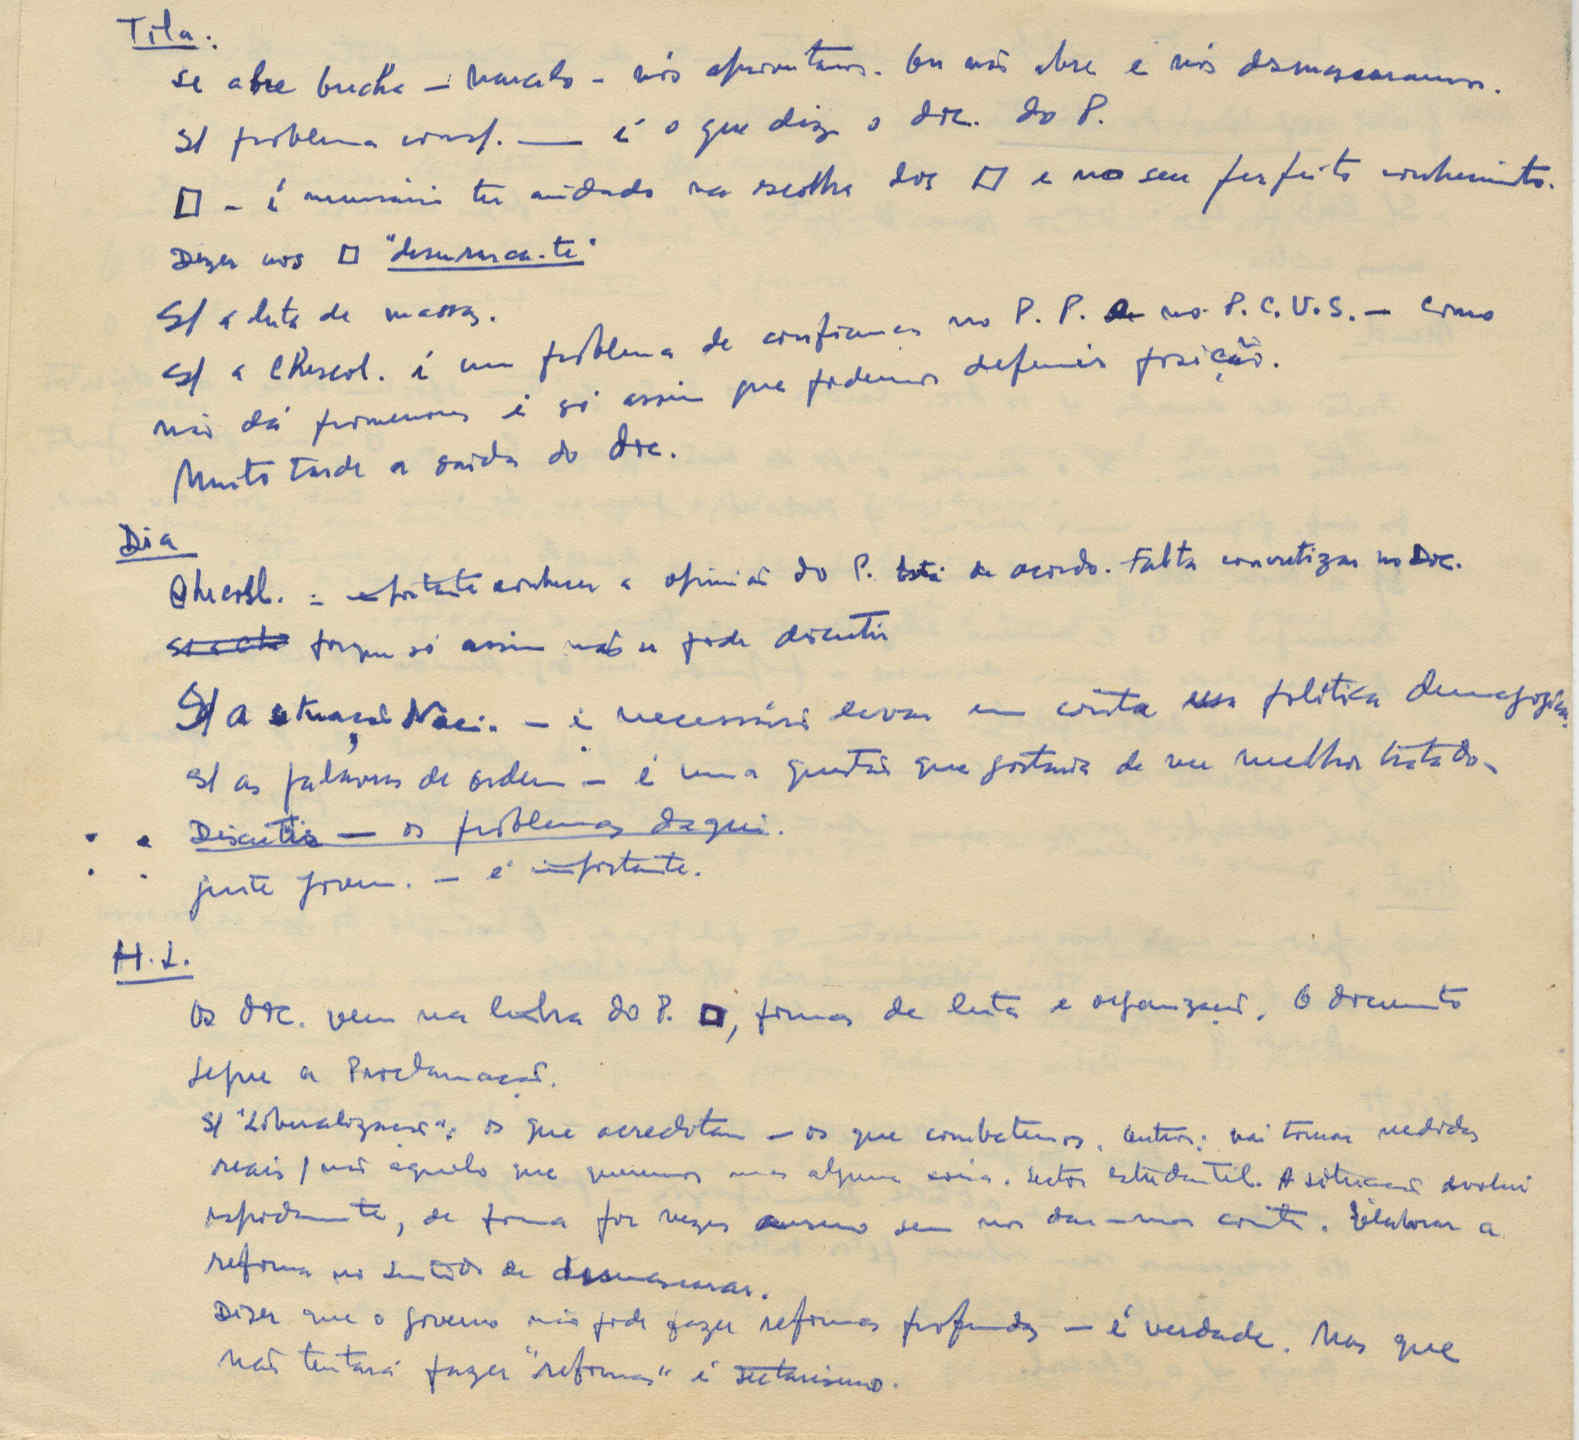 Tila.
se abre brecha – Marcelo – nós aproveitamos. Ou não abre e nós desmascaramos.
S/ problema consp. — é o que diz o doc. do P.
□ – é necessário ter cuidado na escolha dos □ e no seu perfeito conhecimento.
Dizer aos □ "desenrasca-te"
S/ a luta de massas.
S/ a Checosl. é um problema de confiança no P. P. e no P.C.U.S. – como
não dá pormenores é só assim que podemos definir posição.
Muito tarde a saída do doc.
Dia
Checosl. – importante conhecer a opinião do P. Está de acordo. Falta concretizar no Doc.
porque só assim não se pode discutir
S/ a situação Naci. – é necessário levar em conta essa política demagógica.
S/ as palavras de ordem – é uma questão que gostaria de ver melhor tratado.
Discutir – os problemas daqui.
gente jovem. – é importante.
H. L.
Os doc. vem na linha do P. □, formas de luta e organização. O documento
segue a Proclamação.
S/ "Liberalização": os que acreditam – os que combatemos. outros: vai tomar medidas
reais / não aquelo que queremos mas alguma coisa. Sector estudantil. A situação evolui
rapidamente, de forma por vezes mesmo sem nos dar-mos conta. Elaborar a
reforma no sentido de desmascarar.
Dizer que o governo não pode fazer reformas profundas – é verdade. Mas que
não tentará fazer "reformas" é sectarismo.